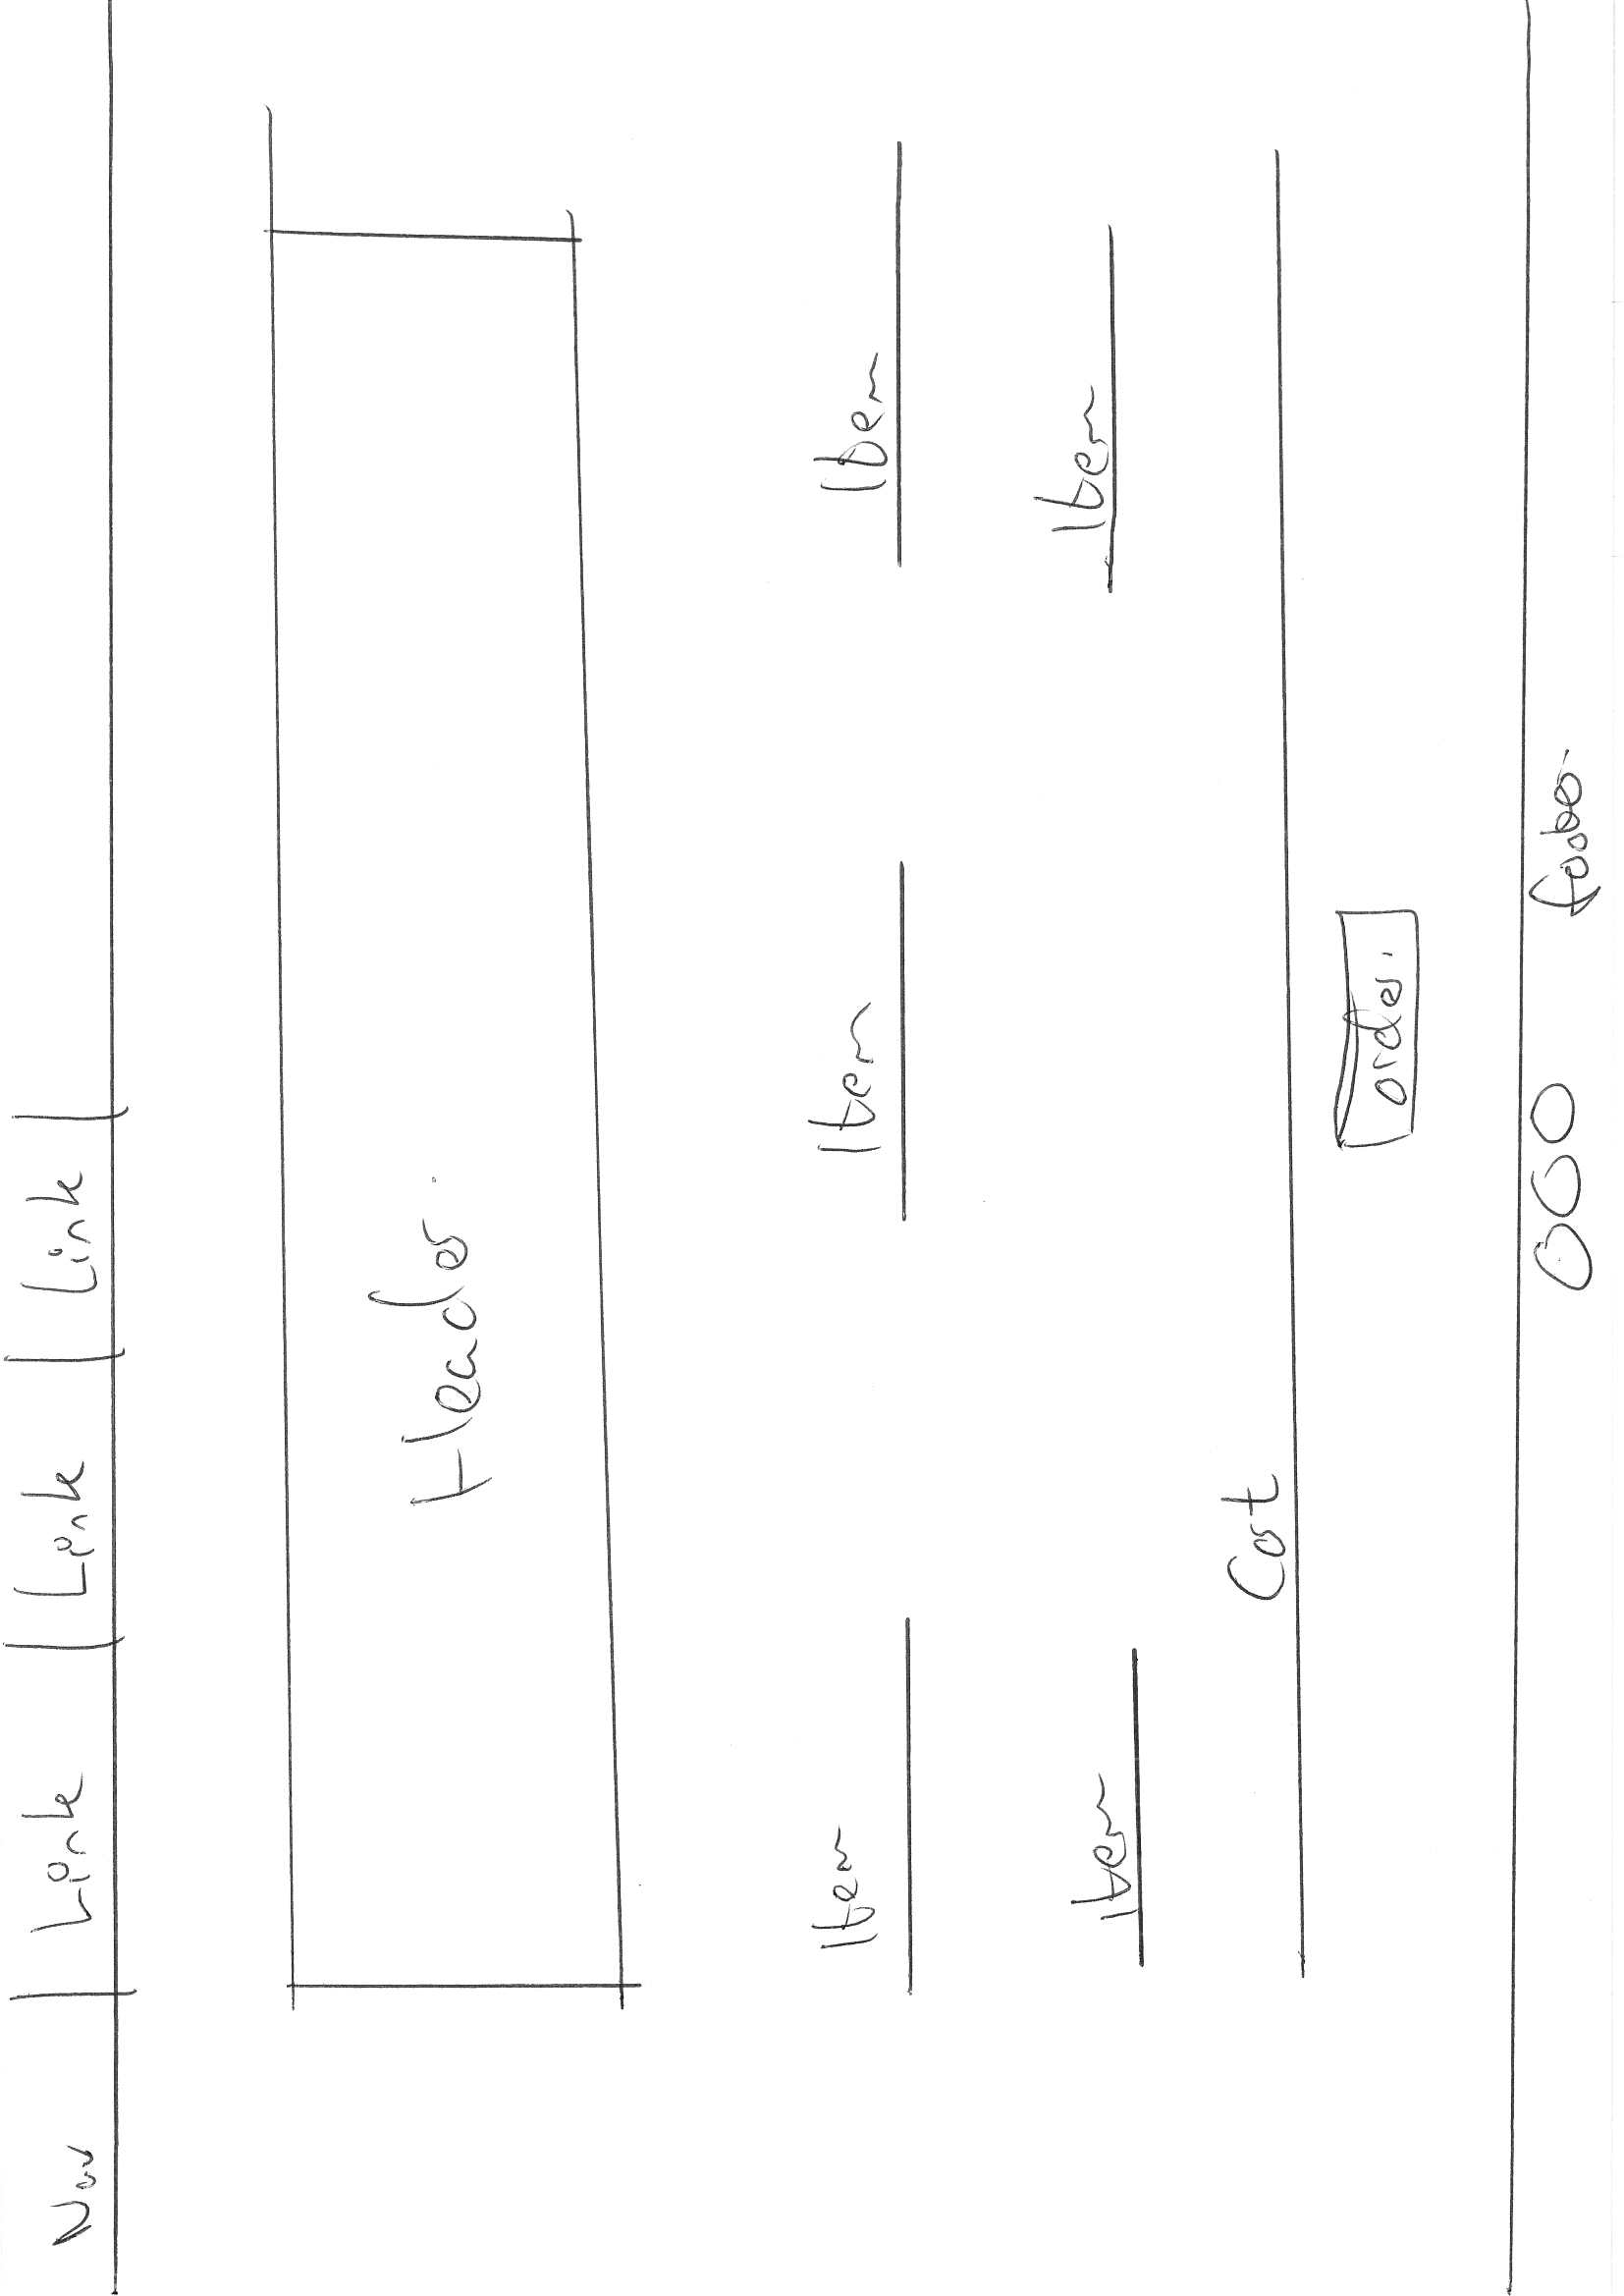 Nav Link Link Link
Header
Item Item Item
Item Item
Cost
order
footer